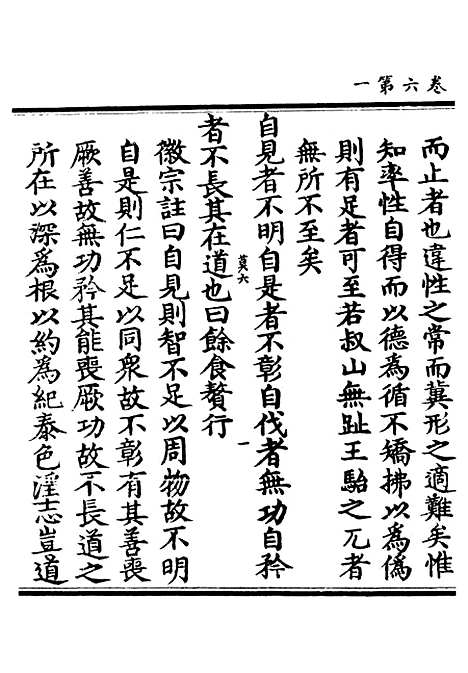 卷六第一
而止者也違性之常而冀形之適難矣惟
知率性自得而以德為循不矯拂以為偽
則有足者可至若叔山無趾王駘之兀者
無所不至矣
自見者不明自是者不彰自伐者無功自矜
者不長其在道也曰餘食贅行
莫六
一
徽宗註曰自見則智不足以周物故不明
自是則仁不足以同衆故不彰有其善喪
厥善故無功矜其能喪厥功故不長道之
所在以深為根以約為紀泰色淫志豈道